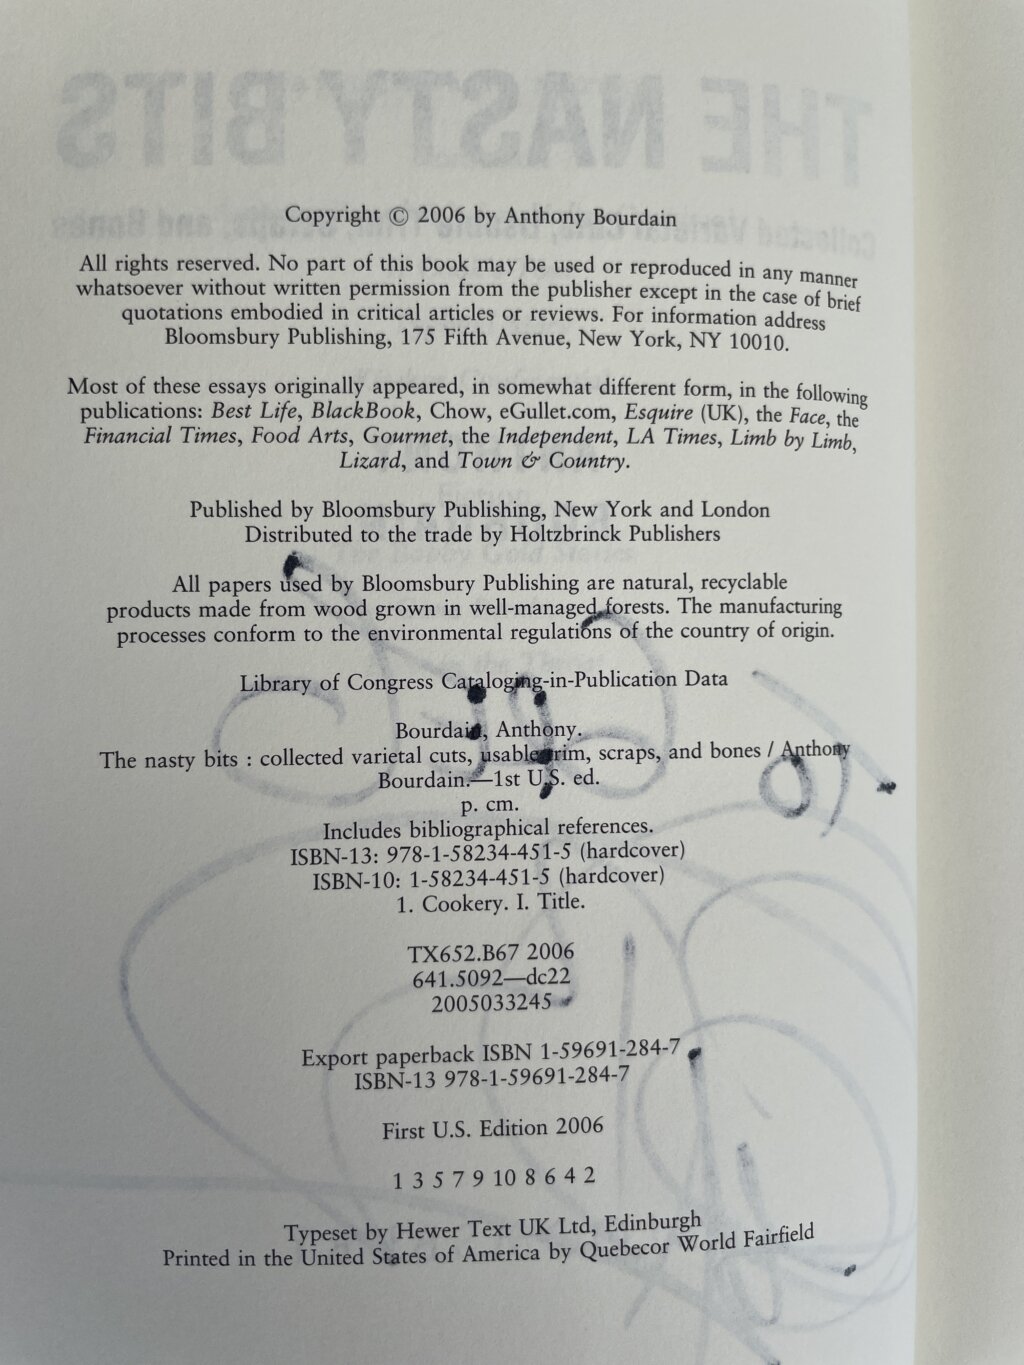 THE NASTY BITS
Copyright © 2006 by Anthony Bourdain
All rights reserved. No part of this book may be used or reproduced in any manner
whatsoever without written permission from the publisher except in the case of brief
quotations embodied in critical articles or reviews. For information address
Bloomsbury Publishing, 175 Fifth Avenue, New York, NY 10010.
Most of these essays originally appeared, in somewhat different form, in the following
publications: Best Life, BlackBook, Chow, eGullet.com, Esquire (UK), the Face, the
Financial Times, Food Arts, Gourmet, the Independent, LA Times, Limb by Limb,
Lizard, and Town & Country.
Published by Bloomsbury Publishing, New York and London
Distributed to the trade by Holtzbrinck Publishers
All papers used by Bloomsbury Publishing are natural, recyclable
products made from wood grown in well-managed forests. The manufacturing
processes conform to the environmental regulations of the country of origin.
Library of Congress Cataloging-in-Publication Data
Bourdain, Anthony.
The nasty bits : collected varietal cuts, usable trim, scraps, and bones / Anthony
Bourdain.—1st U.S. ed.
p. cm.
Includes bibliographical references.
ISBN-13: 978-1-58234-451-5 (hardcover)
ISBN-10: 1-58234-451-5 (hardcover)
1. Cookery. I. Title.
TX652.B67 2006
641.5092—dc22
2005033245
Export paperback ISBN 1-59691-284-7
ISBN-13 978-1-59691-284-7
First U.S. Edition 2006
1 3 5 7 9 10 8 6 4 2
Typeset by Hewer Text UK Ltd, Edinburgh
Printed in the United States of America by Quebecor World Fairfield